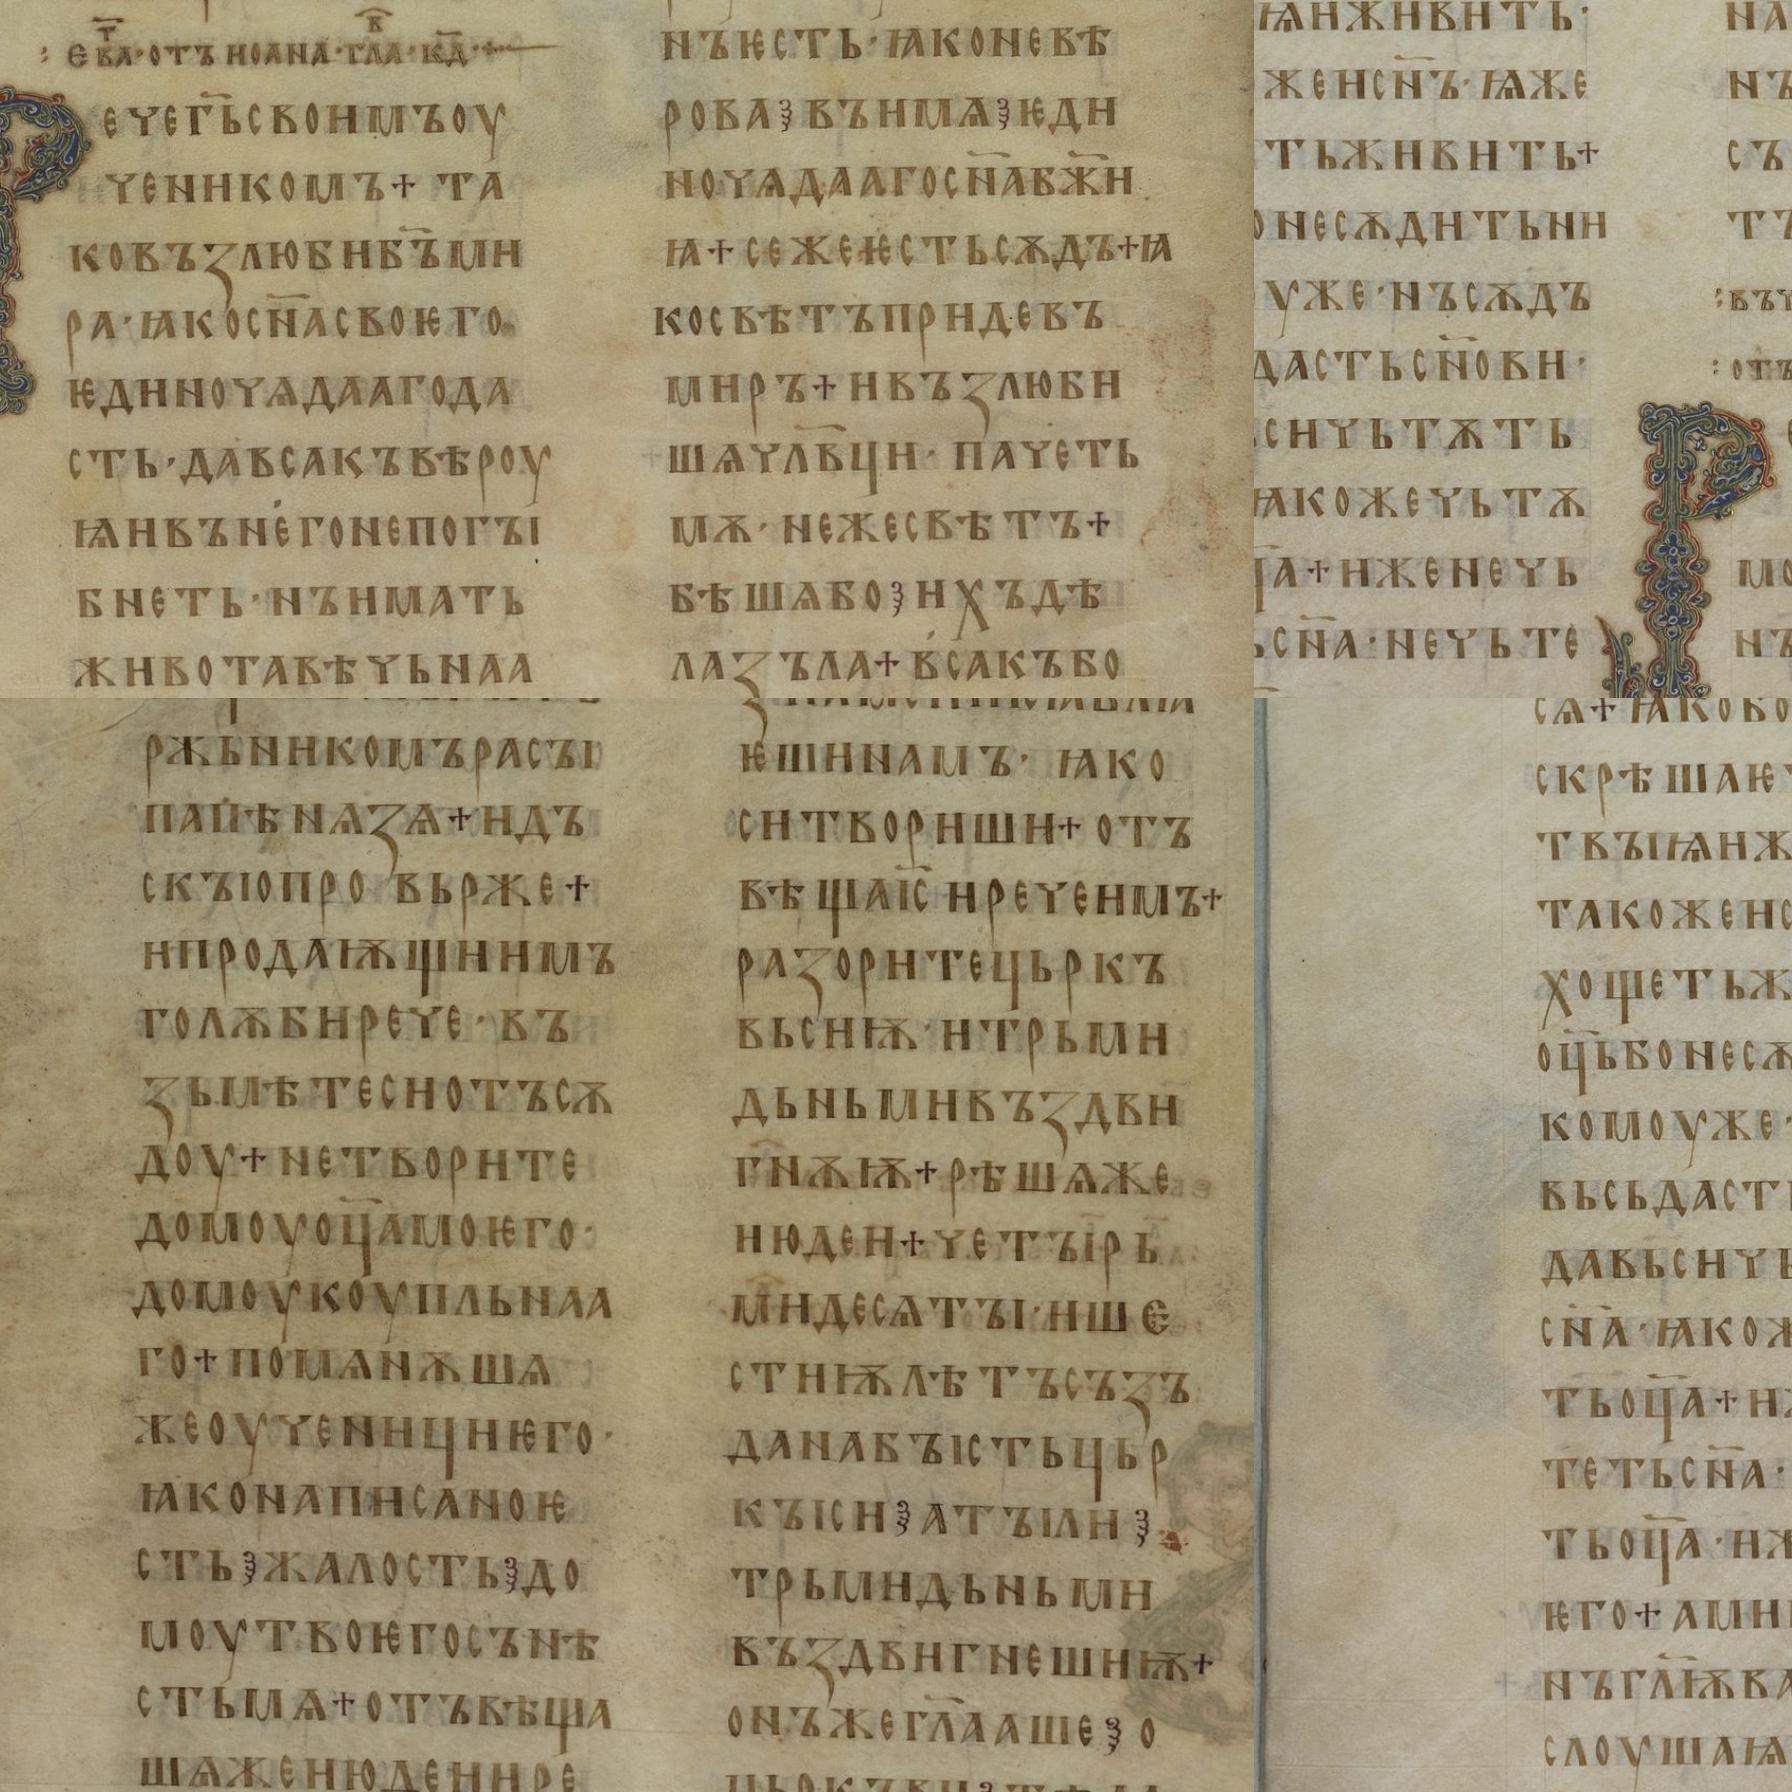 еⷡ҇а·отъ иоана·гл҃а·к҃д·+
ечег҃ьсвоимъоу
ченикомъ+ та
ковъꙁлюбиб҃ъми
ра·ꙗкосн҃асвоѥго
ѥдиночѧдаагода
сть·давсакъвѣроу
ꙗивън҄егонепогꙑ
бнеть·нъимать
животавѣчьнаа
нъѥсть·ꙗконевѣ
роваꙁ︮въимѧꙁ︮ѥди
ночѧдаагосн҃абж҃и
ꙗ+сежеѥстьсѫдъ+ꙗ
косвѣтъпридевъ
миръ+ивъꙁлюби
шѧчл҃вци· пачеть
мѫ· нежесвѣтъ+
бѣшѧбоихъдѣ
лаꙁъла+всакъбо
ꙗниживить·
жеисн҃ъ·ꙗже
тьживить+
онесѫдитьни
уже·нъсѫдъ
дастьсн҃ови·
сичьтѫть
ꙗкожечьтѫ
ц҃а+иженечь
ьсн҃а·нечьте
на
нъ
съ
тъ
:въч
:отъ
мо
нъ
ржьникомърасꙑ
папѣнѧꙁѧ+идъ
скꙑопро вьрже+
ипродаѭщиимъ
голѫбирече·въ
ꙁьмѣтесиотъсѫ
доу+нетворите
домоуоц҃амоѥго·
домоукоупльнаа
го+помѧнѫшѧ
жеоученициѥго·
ꙗконаписаноѥ
стьжалостьдо
моутвоѥгосънѣ
стьмѧ+отъвѣща
шѧжеиюдеиире
ѥшинамъ· ꙗко
ситвориши+отъ
вѣщаіс҃ иреченмъ+
раꙁоритецьркъ
вьсиѭ·итрьми
дьньмивъꙁдви
гнѫѭ+рѣшѧже
июдеи+четꙑрь
мидесѧтꙑ·ише
стиѭлѣтъсъꙁъ
данабꙑстьцьр
кꙑсиатꙑли
трьмидьньми
въꙁдвигнешиѭ+
онъжегл҃ааше о
сѧ+ꙗкобо
скрѣшаѥ
твꙑꙗиж
такожеис
хощетьж
оц҃ьбонесѫ
комоуже·
вьсьдаст
давьсич
сн҃а·ꙗкож
тьоц҃а+и
тетьсн҃а·
тьоц҃а·иж
ѥго+ами
нъгл҃ѭва
слоушаꙗ